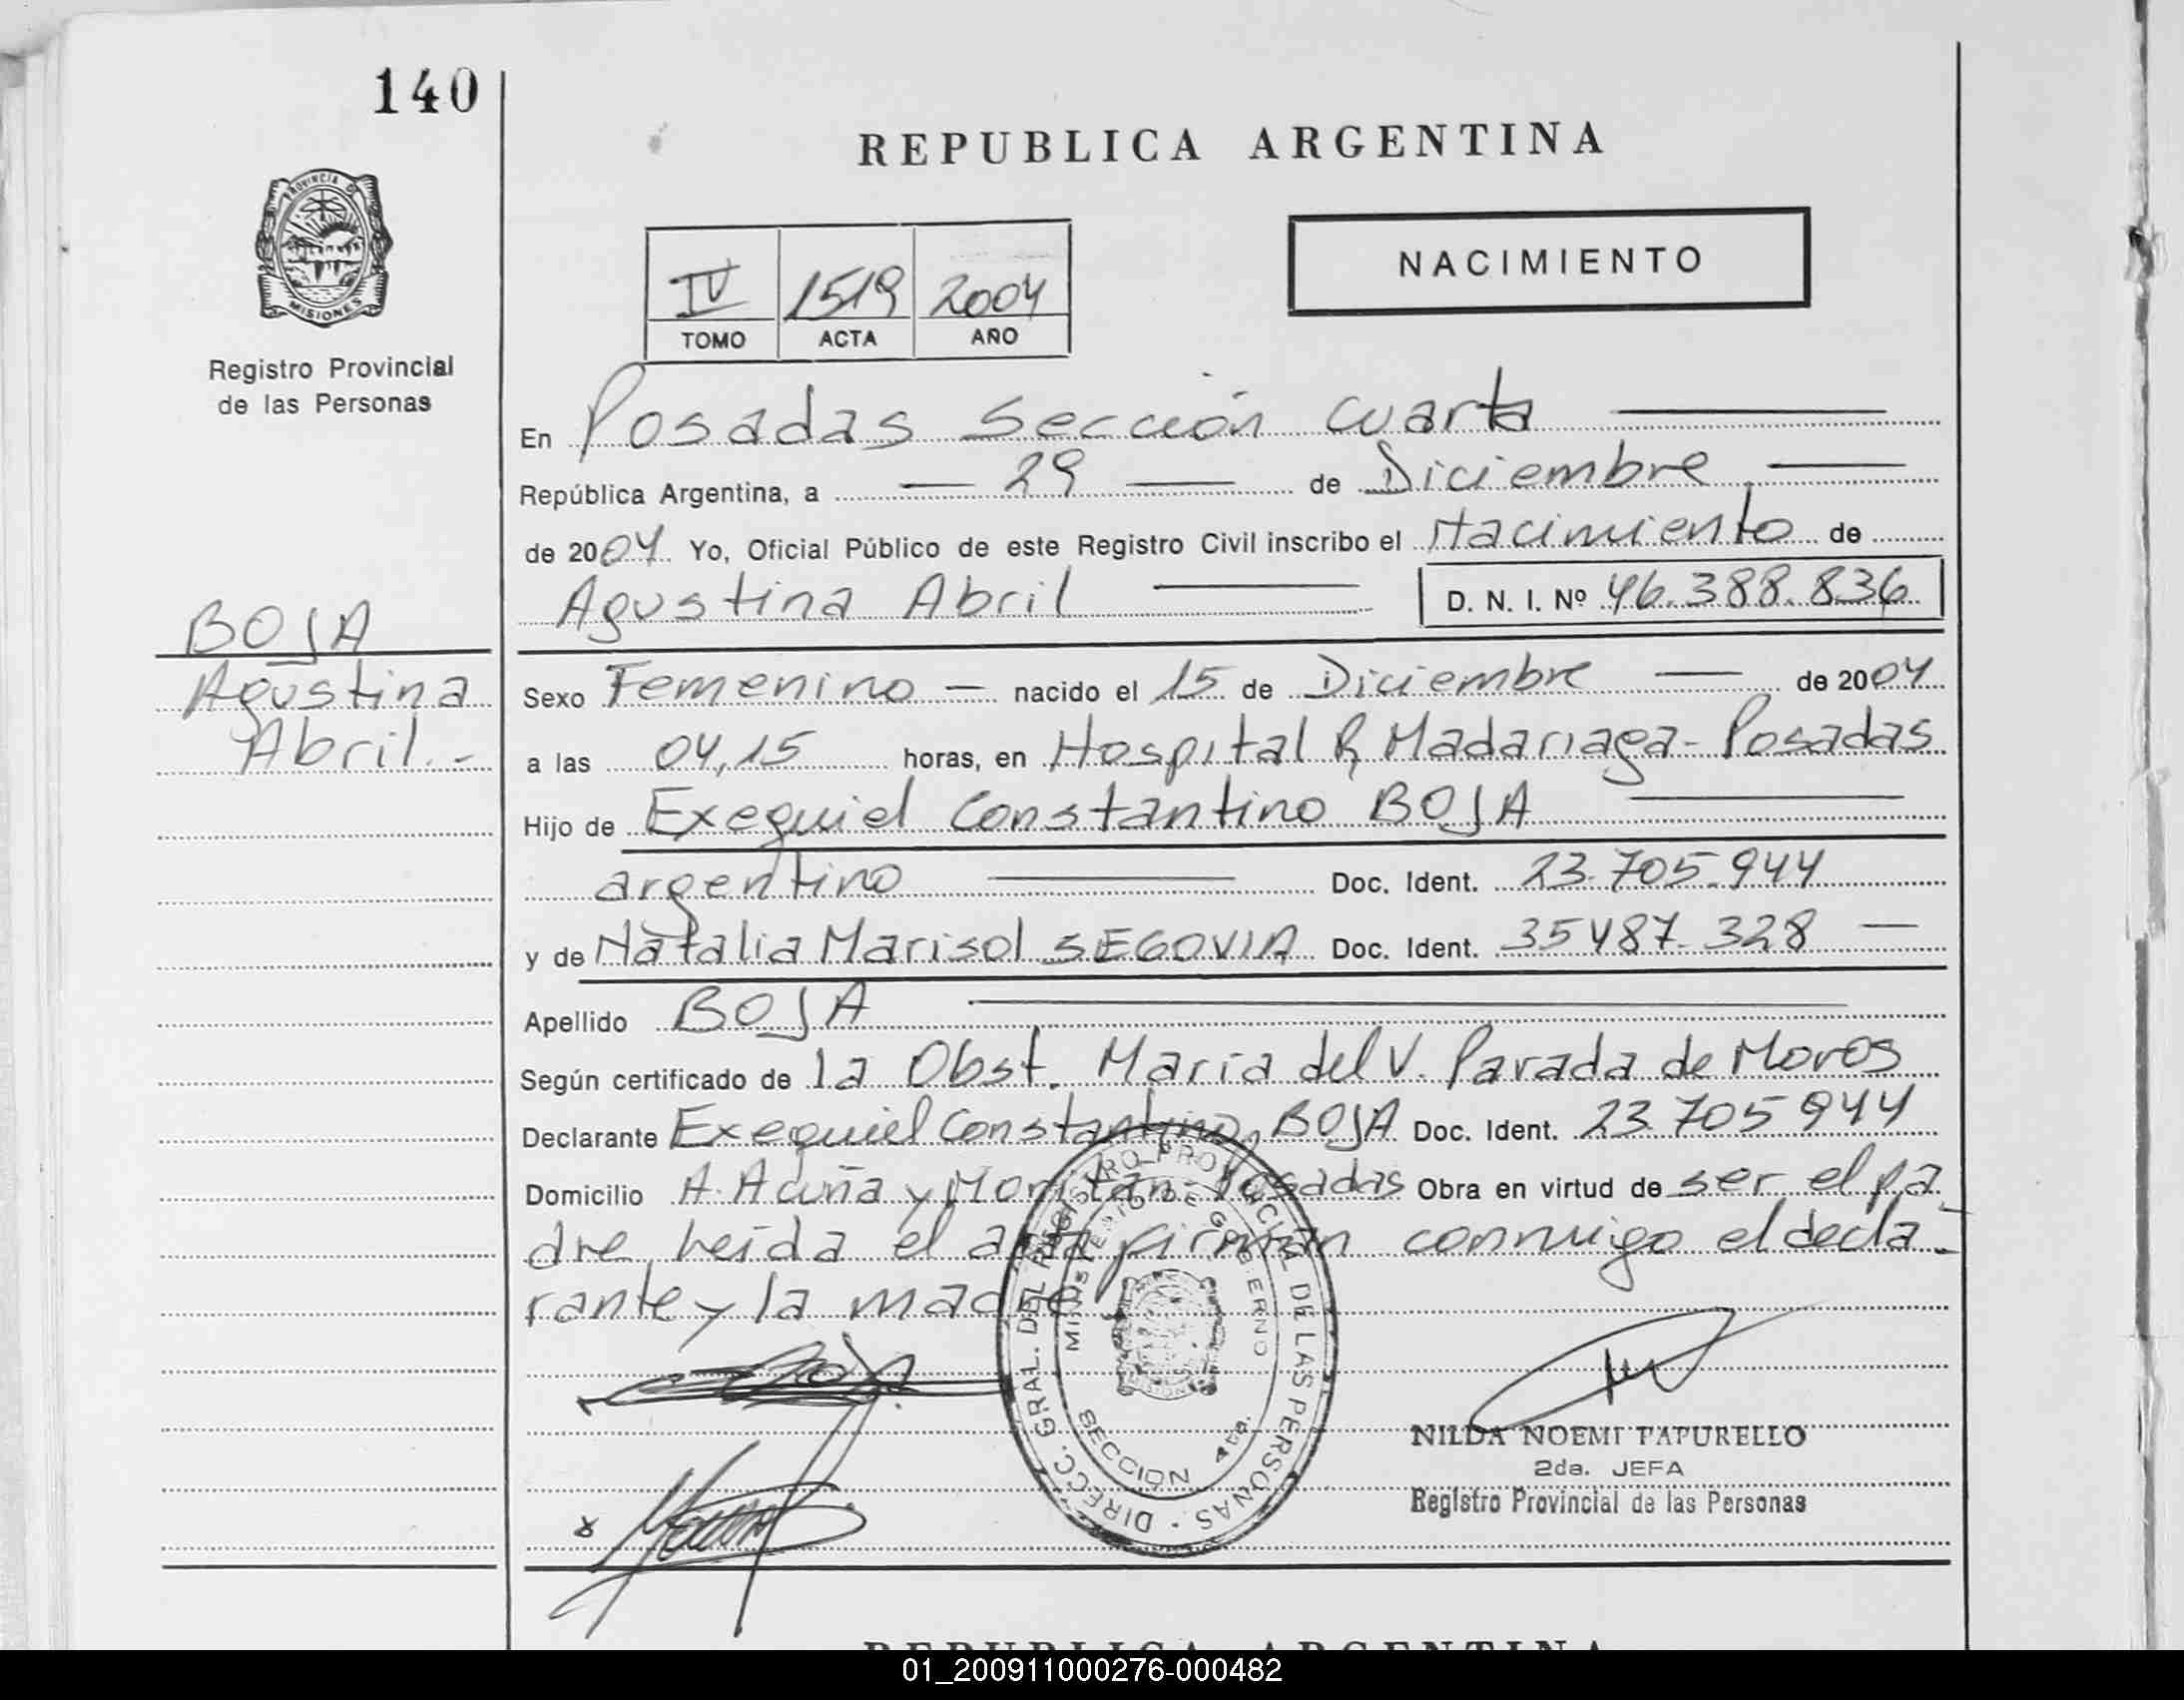 140
REPUBLICA ARGENTINA
PROVINCIA DE
MISIONES
Registro Provincial
de las Personas
NACIMIENTO
IV 1519 2004
TOMO ACTA AÑO
En Posadas Sección Cuarta
República Argentina, a 29 de Diciembre
de 2004 Yo, Oficial Público de este Registro Civil inscribo el Nacimiento de
Agustina Abril D. N. I. Nº 46.388.836
BOJA
Agustina
Abril.-
Sexo Femenino - nacido el 15 de Diciembre de 2004
a las 04,15 horas, en Hospital R Madariaga - Posadas
Hijo de Exequiel Constantino BOJA
argentino Doc. Ident. 23.705.944
y de Natalia Marisol SEGOVIA Doc. Ident. 35487.328
Apellido BOJA
Según certificado de la Obst. Maria del V. Parada de Moros
Declarante Exequiel Constantino BOJA Doc. Ident. 23.705944
Domicilio A. Acuña y Posadas Obra en virtud de ser el pa
dre leída el acta firman conmigo el decla-
rante y la madre
DIRECC. GRAL. DEL REGISTRO PROVINCIAL DE LAS PERSONAS
MINISTERIO DE GOBIERNO
SECCIÓN 4ta.
NILDA NOEMI TAPURELLO
2da. JEFA
Registro Provincial de las Personas
REPUBLICA ARGENTINA
01_200911000276-000482